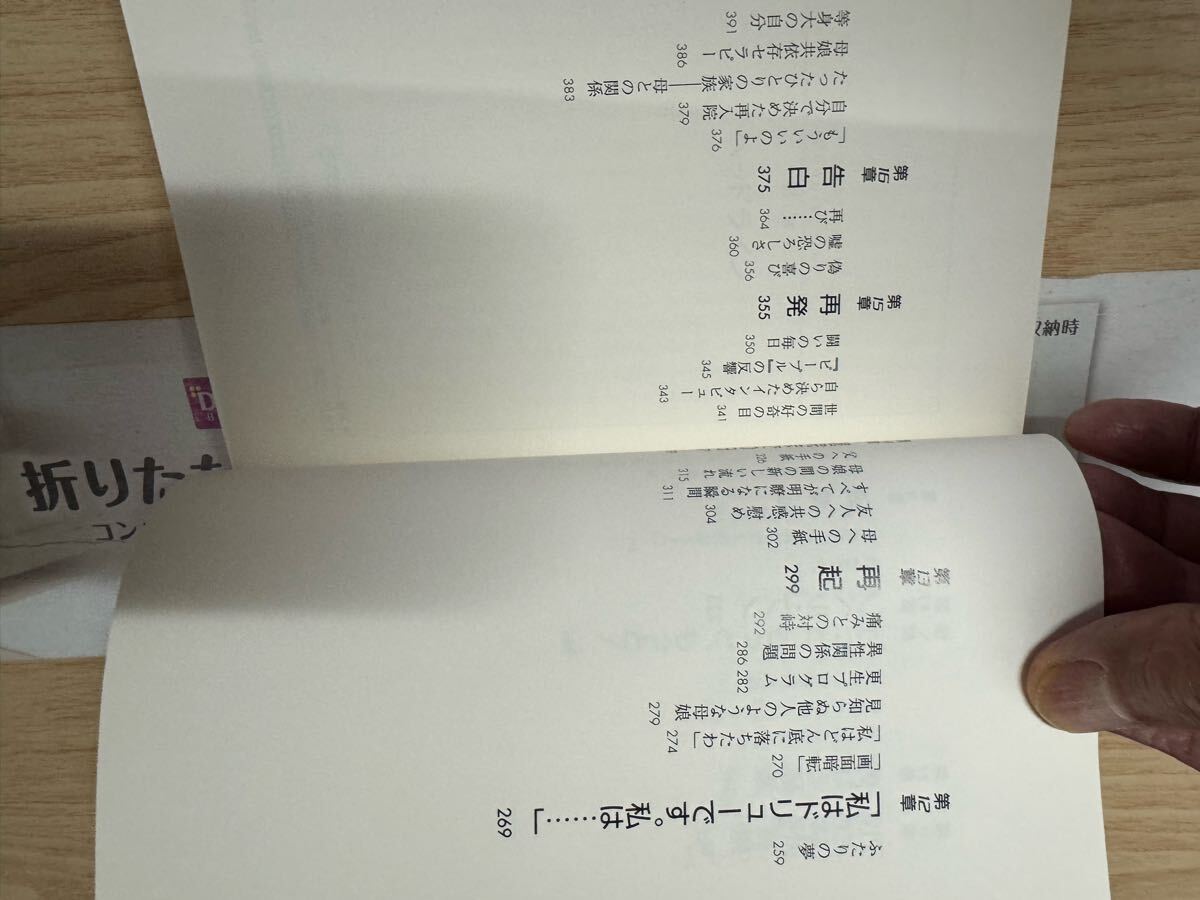 ふたりの夢 259
第12章 「私はドリューです。私は……」 269
「画面暗転」 270
「私はどん底に落ちたわ」 274
見知らぬ他人のような母娘 279
更生プログラム 282
異性関係の問題 286
痛みとの対峙 292
第13章 再起 299
母への手紙 302
友人への共感、慰め 304
すべてが明瞭になる瞬間 311
母娘の間の新しい流れ 315
父への手紙
世間の好奇の目 341
自ら決めたインタビュー 343
『ピープル』の反響 345
闘いの毎日 350
第15章 再発 355
偽りの喜び 356
嘘の恐ろしさ 360
再び…… 364
第16章 告白 375
「もういいのよ」 376
自分で決めた再入院 379
たったひとりの家族――母との関係 383
母娘共依存セラピー 386
等身大の自分 391
折りたた
コン
納時